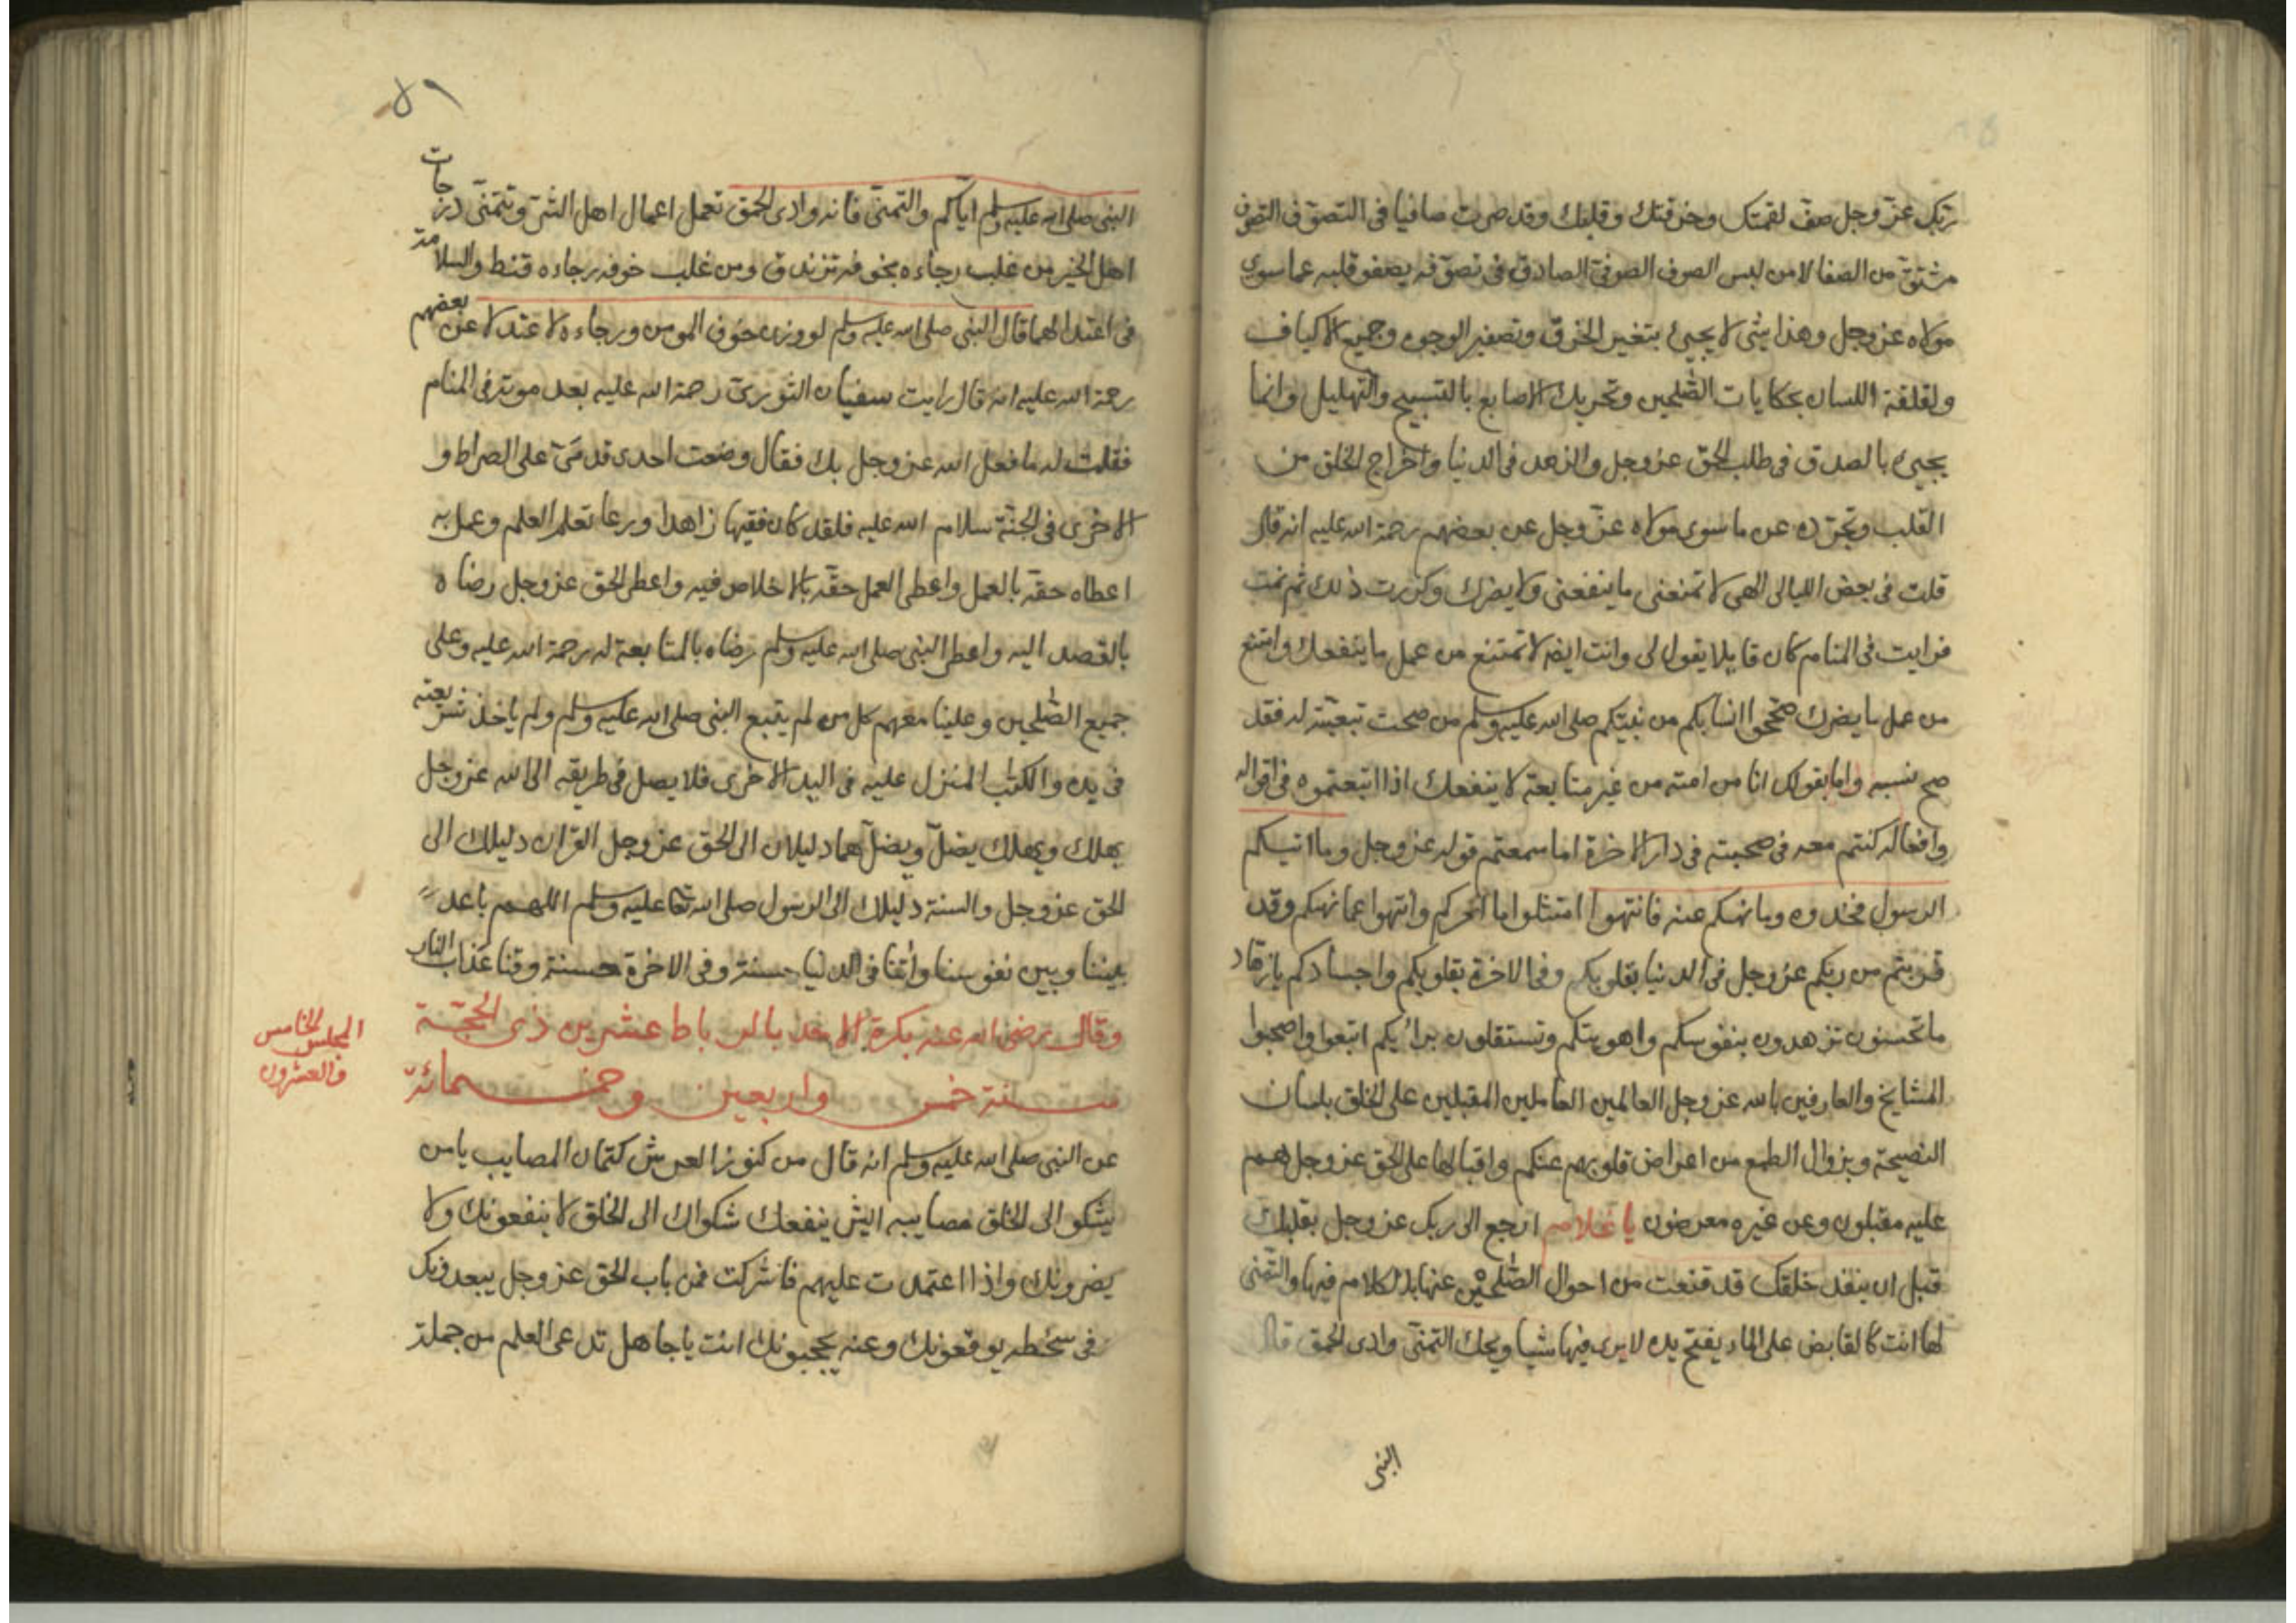 ربك عز وجل صف لقمتك وخرقتك وقلبك وقد صرت صافيا في التصوف التصوف
مشتق من الصفا لا من لبس الصوف الصوفي الصادق في تصوفه يصفو قلبه عما سوى
مولاه عز وجل وهذا شئ لا يجيئ بتغير الخرق وتصفير الوجوه وجميع الاكياف
ولقلقة اللسان بحكايات الصلحين وتحريك الاصابع بالتسبيح والتهليل وانما
يجيئ بالصدق في طلب الحق عز وجل والزهد في الدنيا واخراج الخلق من
القلب وتجرده عن ما سوى مولاه عز وجل عن بعضهم رحمة الله عليه انه قال
قلت في بعض الليالي الهي لا تمنعني ما ينفعني ولا يضرك وكررت ذلك ثم نمت
فرايت في المنام كان قايلا يقول لي وانت ايضا لا تمتنع من عمل ما ينفعك وامتنع
من عمل ما يضرك صححوا انسابكم من نبيكم صلى الله عليه وسلم من صحت تبعيته له فقد
صح نسبه واما بقولك انا من امته من غير متابعة لا ينفعك اذا اتبعتموه في اقواله
وافعاله كنتم معه في صحبته في دار الاخرة اما سمعتم قوله عز وجل وما اتيكم
الرسول فخذوه وما نهيكم عنه فانتهوا امتثلوا ما امركم وانتهوا عما نهيكم وقد
قربتم من ربكم عز وجل في الدنيا بقلوبكم وفي الاخرة بقلوبكم واجسادكم يا زهاد
ما تحسنون تزهدون بنفوسكم واهويتكم وتستقلون برائيكم اتبعوا واصحبوا
المشايخ والعارفين بالله عز وجل العالمين العاملين المقبلين على الخلق بلسان
النصيحة وبزوال الطمع من اعراض قلوبهم عنكم واقبالها على الحق عز وجل هم
عليه مقبلون وعن غيره معرضون يا غلام ارجع الى ربك عز وجل بقلبك
قبل ان ينفذ خلقك قد قنعت من احوال الصلحين عنها بالكلام فيها والتمني
لها انت كالقابض على الماء يفتح يده لا يرى فيها شيا ويحك التمني وادي الحمق قال
النبي
٥٩
النبي صلى الله عليه وسلم اياكم والتمني فانه وادي الحمق تعمل اعمال اهل الشر وتتمنى درجات
اهل الخير من غلب رجاءه بخوفه تزندق ومن غلب خوفه رجاءه قنط والسلامة
في اعتدالهما قال النبي صلى الله عليه وسلم لو وزن خوف المومن ورجاءه لاعتدلا عن بعضهم
رحمة الله عليه انه قال رايت سفيان الثوري رحمة الله عليه بعد موته في المنام
فقلت له ما فعل الله عز وجل بك فقال وضعت احدى قدمي على الصراط و
الاخرى في الجنة سلام الله عليه فلقد كان فقيها زاهدا ورعا تعلم العلم وعمل به
اعطاه حقه بالعمل واعطى العمل حقه بالاخلاص فيه واعطى الحق عز وجل رضاه
بالقصد اليه واعطى النبي صلى الله عليه وسلم رضاه بالمتابعة له رحمة الله عليه وعلى
جميع الصلحين وعلينا معهم كل من لم يتبع النبي صلى الله عليه وسلم ولم ياخذ شريعته
في يده والكتب المنزل عليه في اليد الاخرى فلا يصل في طريقه الى الله عز وجل
يهلك ويهلك يضل ويضل هما دليلان الى الحق عز وجل القران دليلك الى
الحق عز وجل والسنة دليلك الى الرسول صلى الله تعا عليه وسلم اللهم باعد
بيننا وبين نفوسنا واتنا في الدنيا حسنة وفي الاخرة حسنة وقنا عذاب النار
وقال رضي الله عنه بكرة الاحد بالرباط عشرين ذي الحجة
سنة خمس واربعين وخمسمائة
المجلس الخامس
والعشرون
عن النبي صلى الله عليه وسلم انه قال من كنوز العرش كتمان المصايب يا من
يشكو الى الخلق مصايبه ايش ينفعك شكواك الى الخلق لا ينفعونك ولا
يضرونك واذا اعتمدت عليهم فاشركت فمن باب الحق عز وجل يبعدونك
في سخطه يوقعونك وعنه يحجبونك انت يا جاهل تدعي العلم من جملة